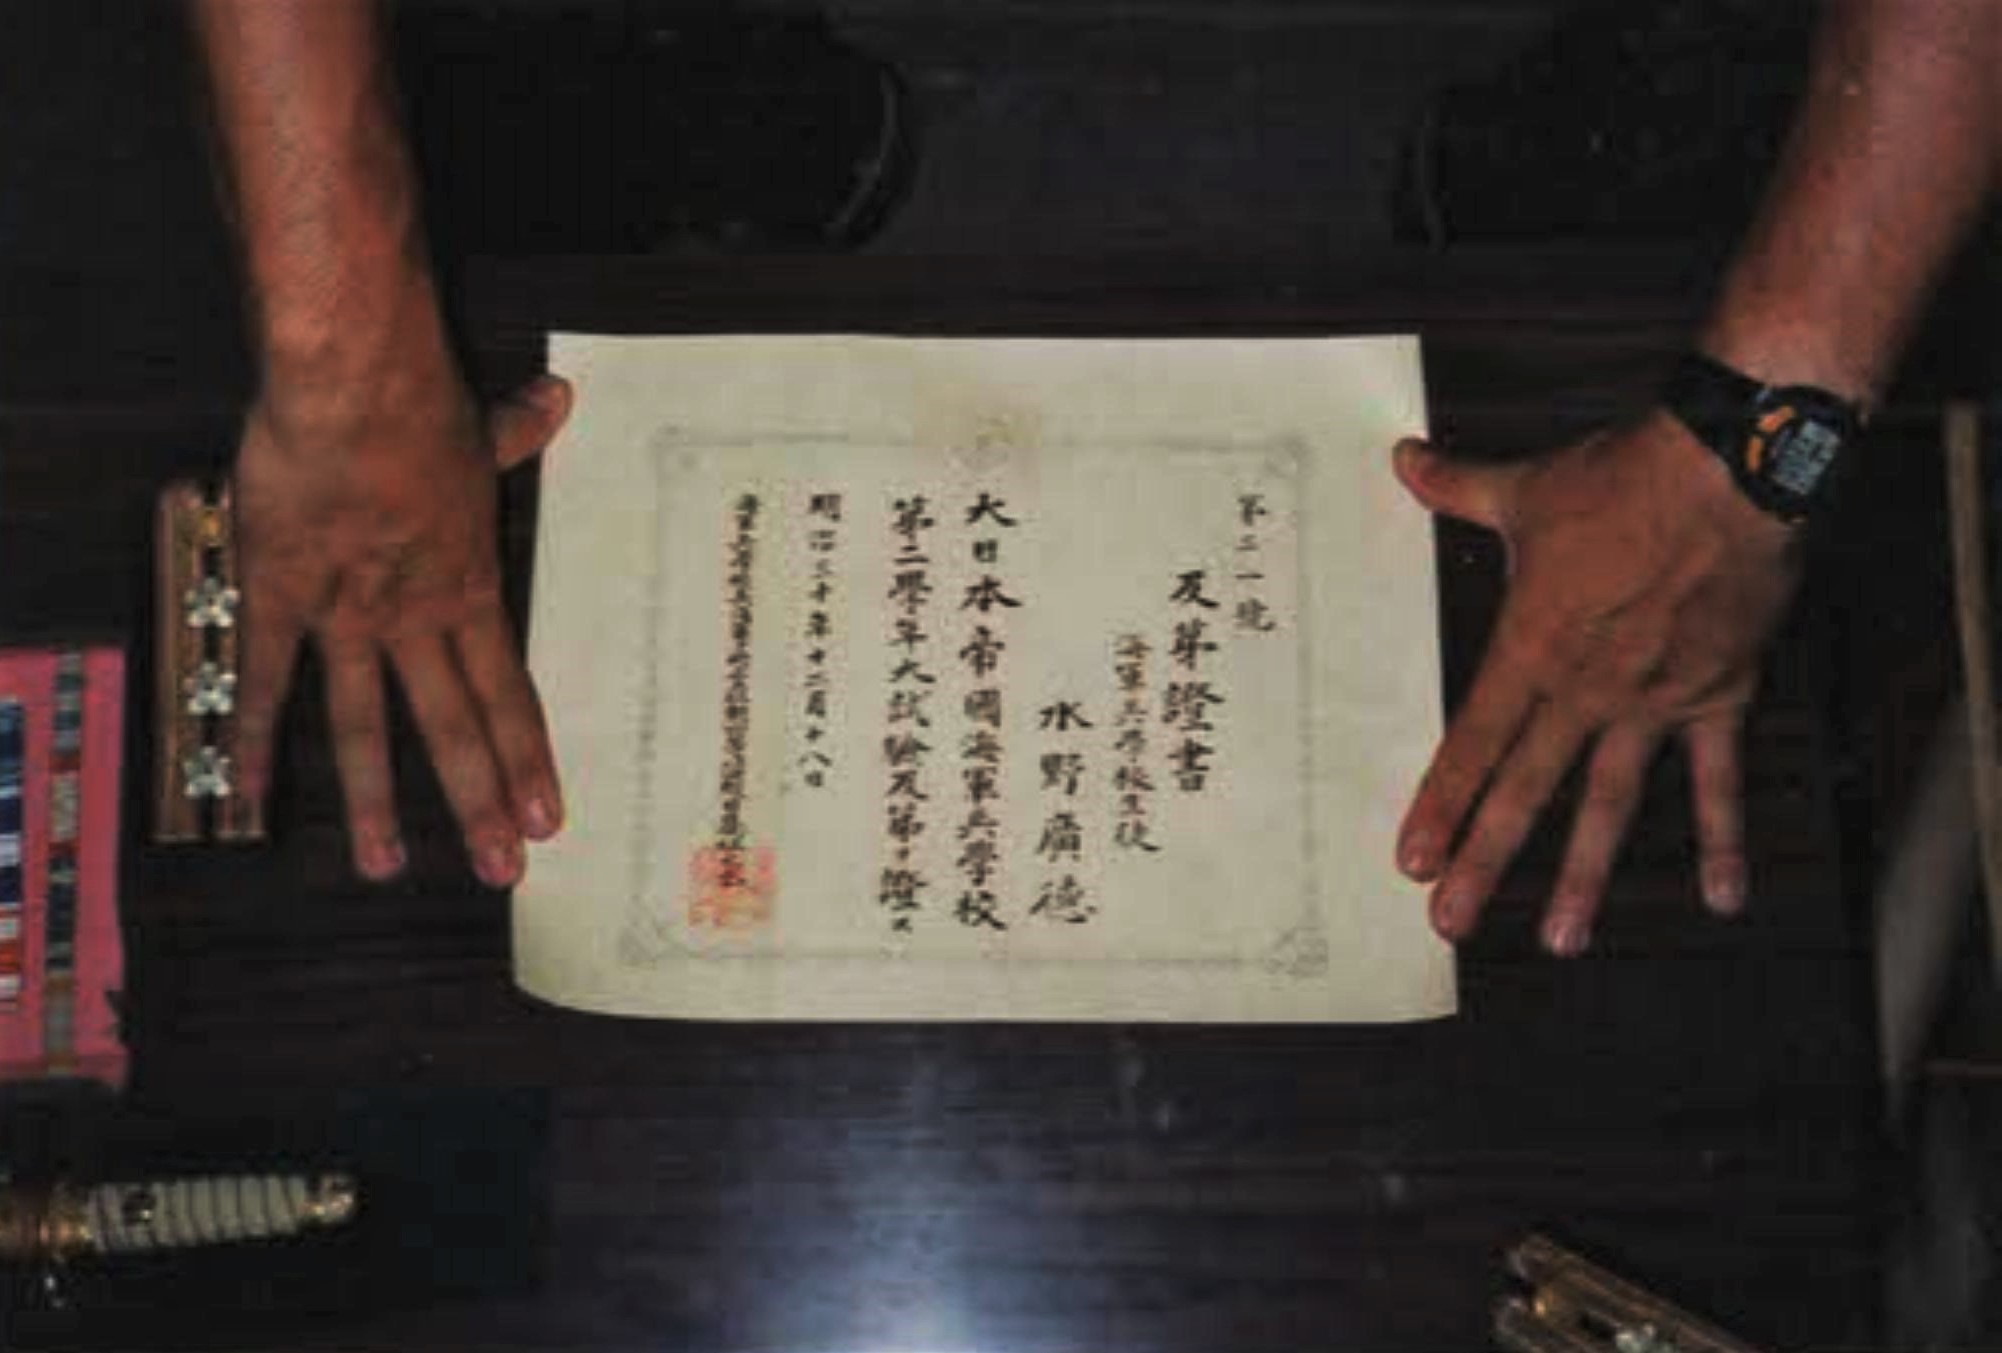 第二一號
及第證書
海軍兵學校生徒
水野廣德
大日本帝國海軍兵學校
第二學年大試驗及第ヲ證ス
明治三十年十二月十八日